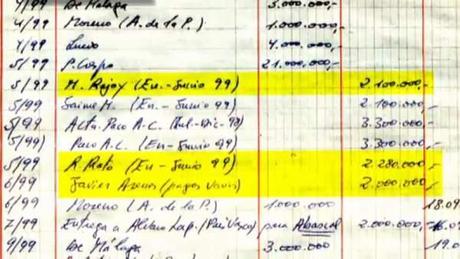 4/99 De Málaga 3.000.000,-
4/99 Moreno (A. de la P.) 1.000.000,-
4/99 Luevo 4.000.000,-
5/99 P. Crespo 21.000.000,-
5/99 M. Rajoy (En.-Junio 99) 2.100.000,-
5/99 Jaime M. (En.-Junio 99) 2.100.000,-
5/99 Acta. Paco A-C. (Jul-Dic-98) 3.300.000,-
5/99) Paco A-C. (En-Junio 99) 3.300.000,-
5/99 R. Rato (En-Junio 99) 2.280.000,-
6/99 Javier Arenas (pagos varios) 2.000.000,-
6/99 Moreno (A. de la P.) 1.000.000 18.09
7/99 Entrega a Alvaro Lap. (País Vasco) para Abascal 2.000.000,-
9/99 De Málaga 3.000.000 19.0